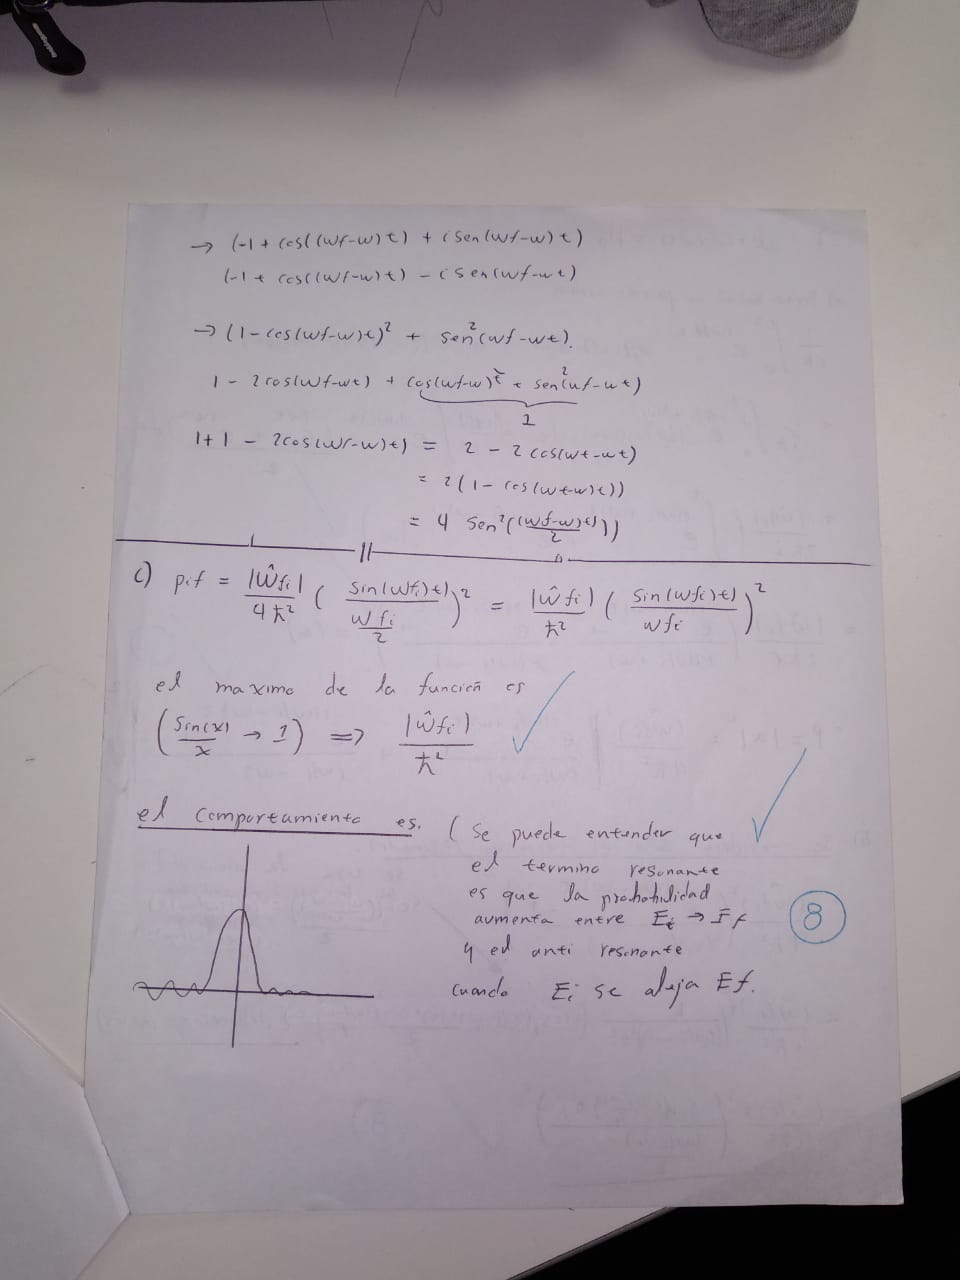 → (-1 + cos((wf-w)t) + i sen(wf-w)t)
(-1 + cos((wf-w)t) - i sen(wf-wt)
→ (1-cos(wf-w)t)² + sen²(wf-wt).
1 - 2cos(wf-wt) + cos(wf-w)²t + sen²(wf-wt)
1
1+1 - 2cos(wf-w)t) = 2 - 2cos(wt-wt)
= 2(1 - cos(wt-w)t))
= 4 sen²((wf-w)t)/2))
c) pif = |ŵfi|/4ħ² ( sin(wfi)t)/(wfi/2) )² = |ŵfi)/ħ² ( sin(wfi)t)/wfi )²
el maximo de la función es
(sin(x)/x → 1) => |ŵfi)/ħ²
el comportamiento es. ( se puede entender que
el termino resonante
es que la probabilidad
aumenta entre Ei → Ef
y el anti resonante
cuando Ei se aleja Ef.
8